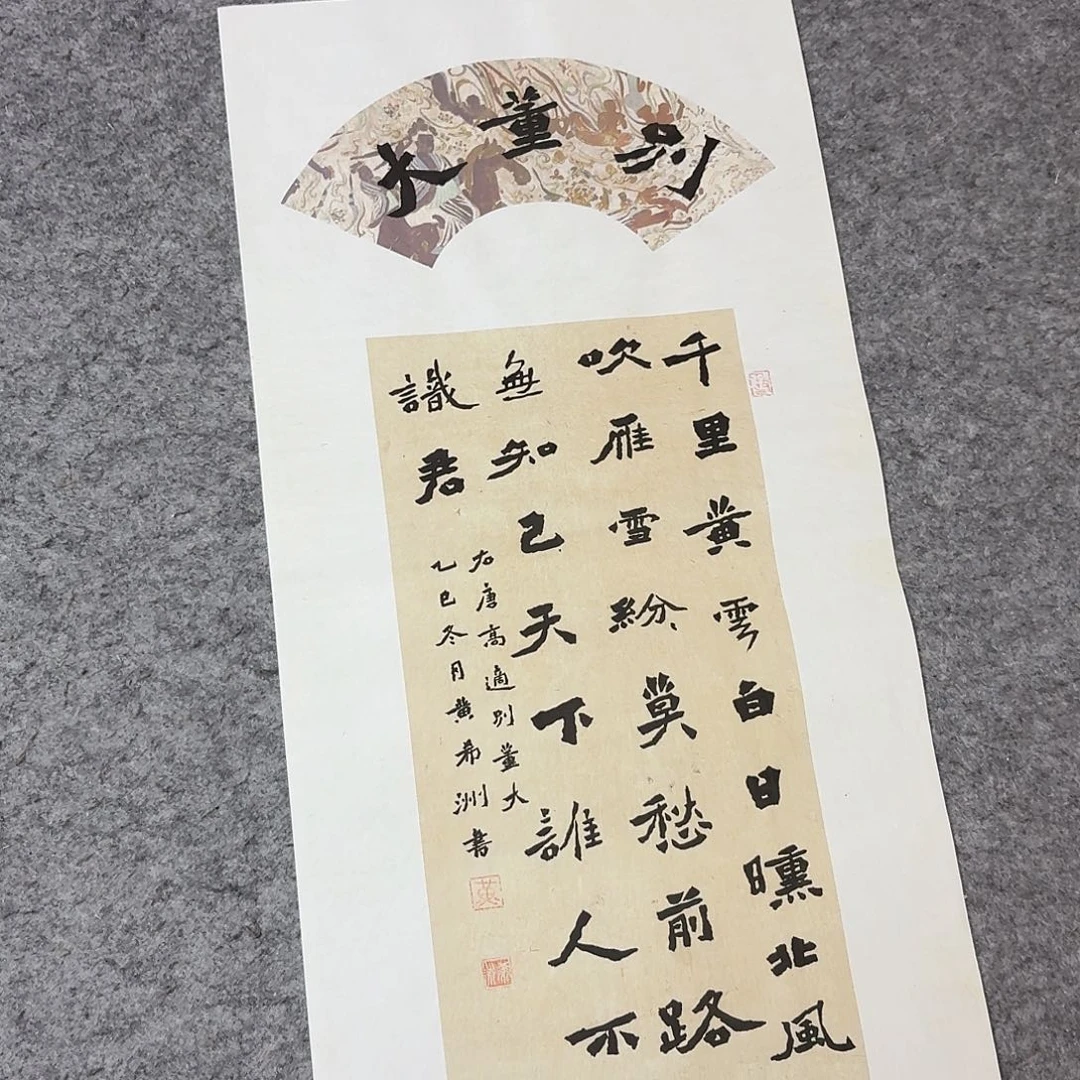 別董大
千里黄雲白日曛北風
吹雁雪紛、莫愁前路
無知己天下誰人不
識君
右唐高適別董大
乙巳冬月黄希洲書
黄